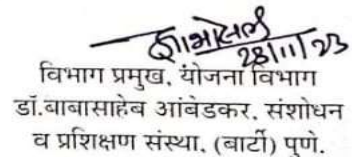 28/11/23
विभाग प्रमुख, योजना विभाग
डॉ.बाबासाहेब आंबेडकर, संशोधन
व प्रशिक्षण संस्था, (बार्टी) पुणे.